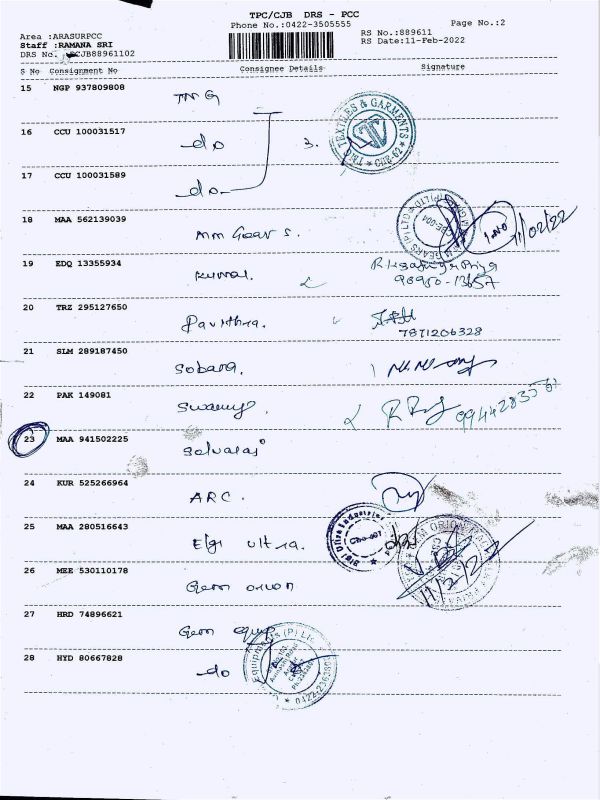 TPC/CJB DRS - PCC
Phone No.:0422-3505555
Page No.:2
Area :ARASURPCC
RS No.:889611
Staff :RAMANA SRI
RS Date:11-Feb-2022
DRS No. CJB88961102
S No Consignment No Consignee Details Signature
15 NGP 937809808
TMG
16 CCU 100031517
do 3.
TEXTILES & GARMENTS
CHE-62
17 CCU 100031589
do
18 MAA 562139039
MM Gears.
GEARS (P) LTD
11/02/22
19 EDQ 13355934
Kumar.
20 TRZ 295127650
Pavithra.
7871206328
21 SLM 289187450
Sobana.
22 PAK 149081
Swamy.
23 MAA 941502225
Selvaraj
24 KUR 525266964
ARC.
25 MAA 280516643
Elgi ultra.
Elgi Ultra Industries
26 MEE 530110178
Gem orion
11/2/22
27 HRD 74896621
Gem equip
Equipments (P) Ltd
28 HYD 80667828
do